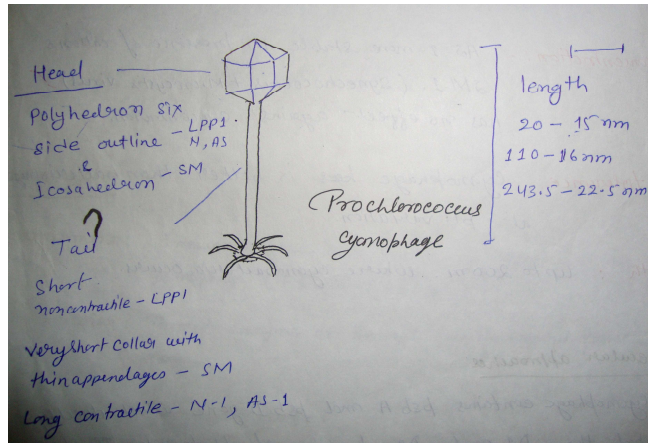 Head
Polyhedron six
side outline - LPP1
N, AS
&
Icosahedron - SM
?
Tail
Short
noncontractile - LPP1
Very short collar with
thin appendages - SM
Long contractile - N-1, AS-1
Prochlorococcus
cyanophage
length
20 - 15 nm
110 - 16 nm
243.5 - 22.5 nm